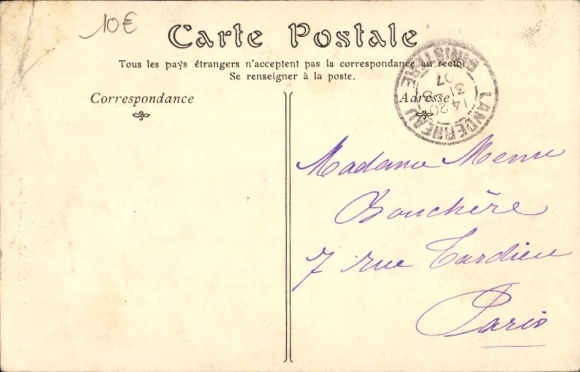 10€
Carte Postale
Tous les pays étrangers n'acceptent pas la correspondance au recto.
Se renseigner à la poste.
Correspondance
Adresse
LANDERNEAU
FINISTERE
14 20
31
07
Madame Menu
Bouchère
7 rue Tardieu
Paris